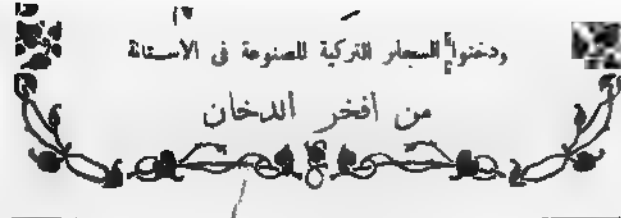 ودخنوا السجاير التركية المصنوعة فى الاستانة
من أفخر الدخان